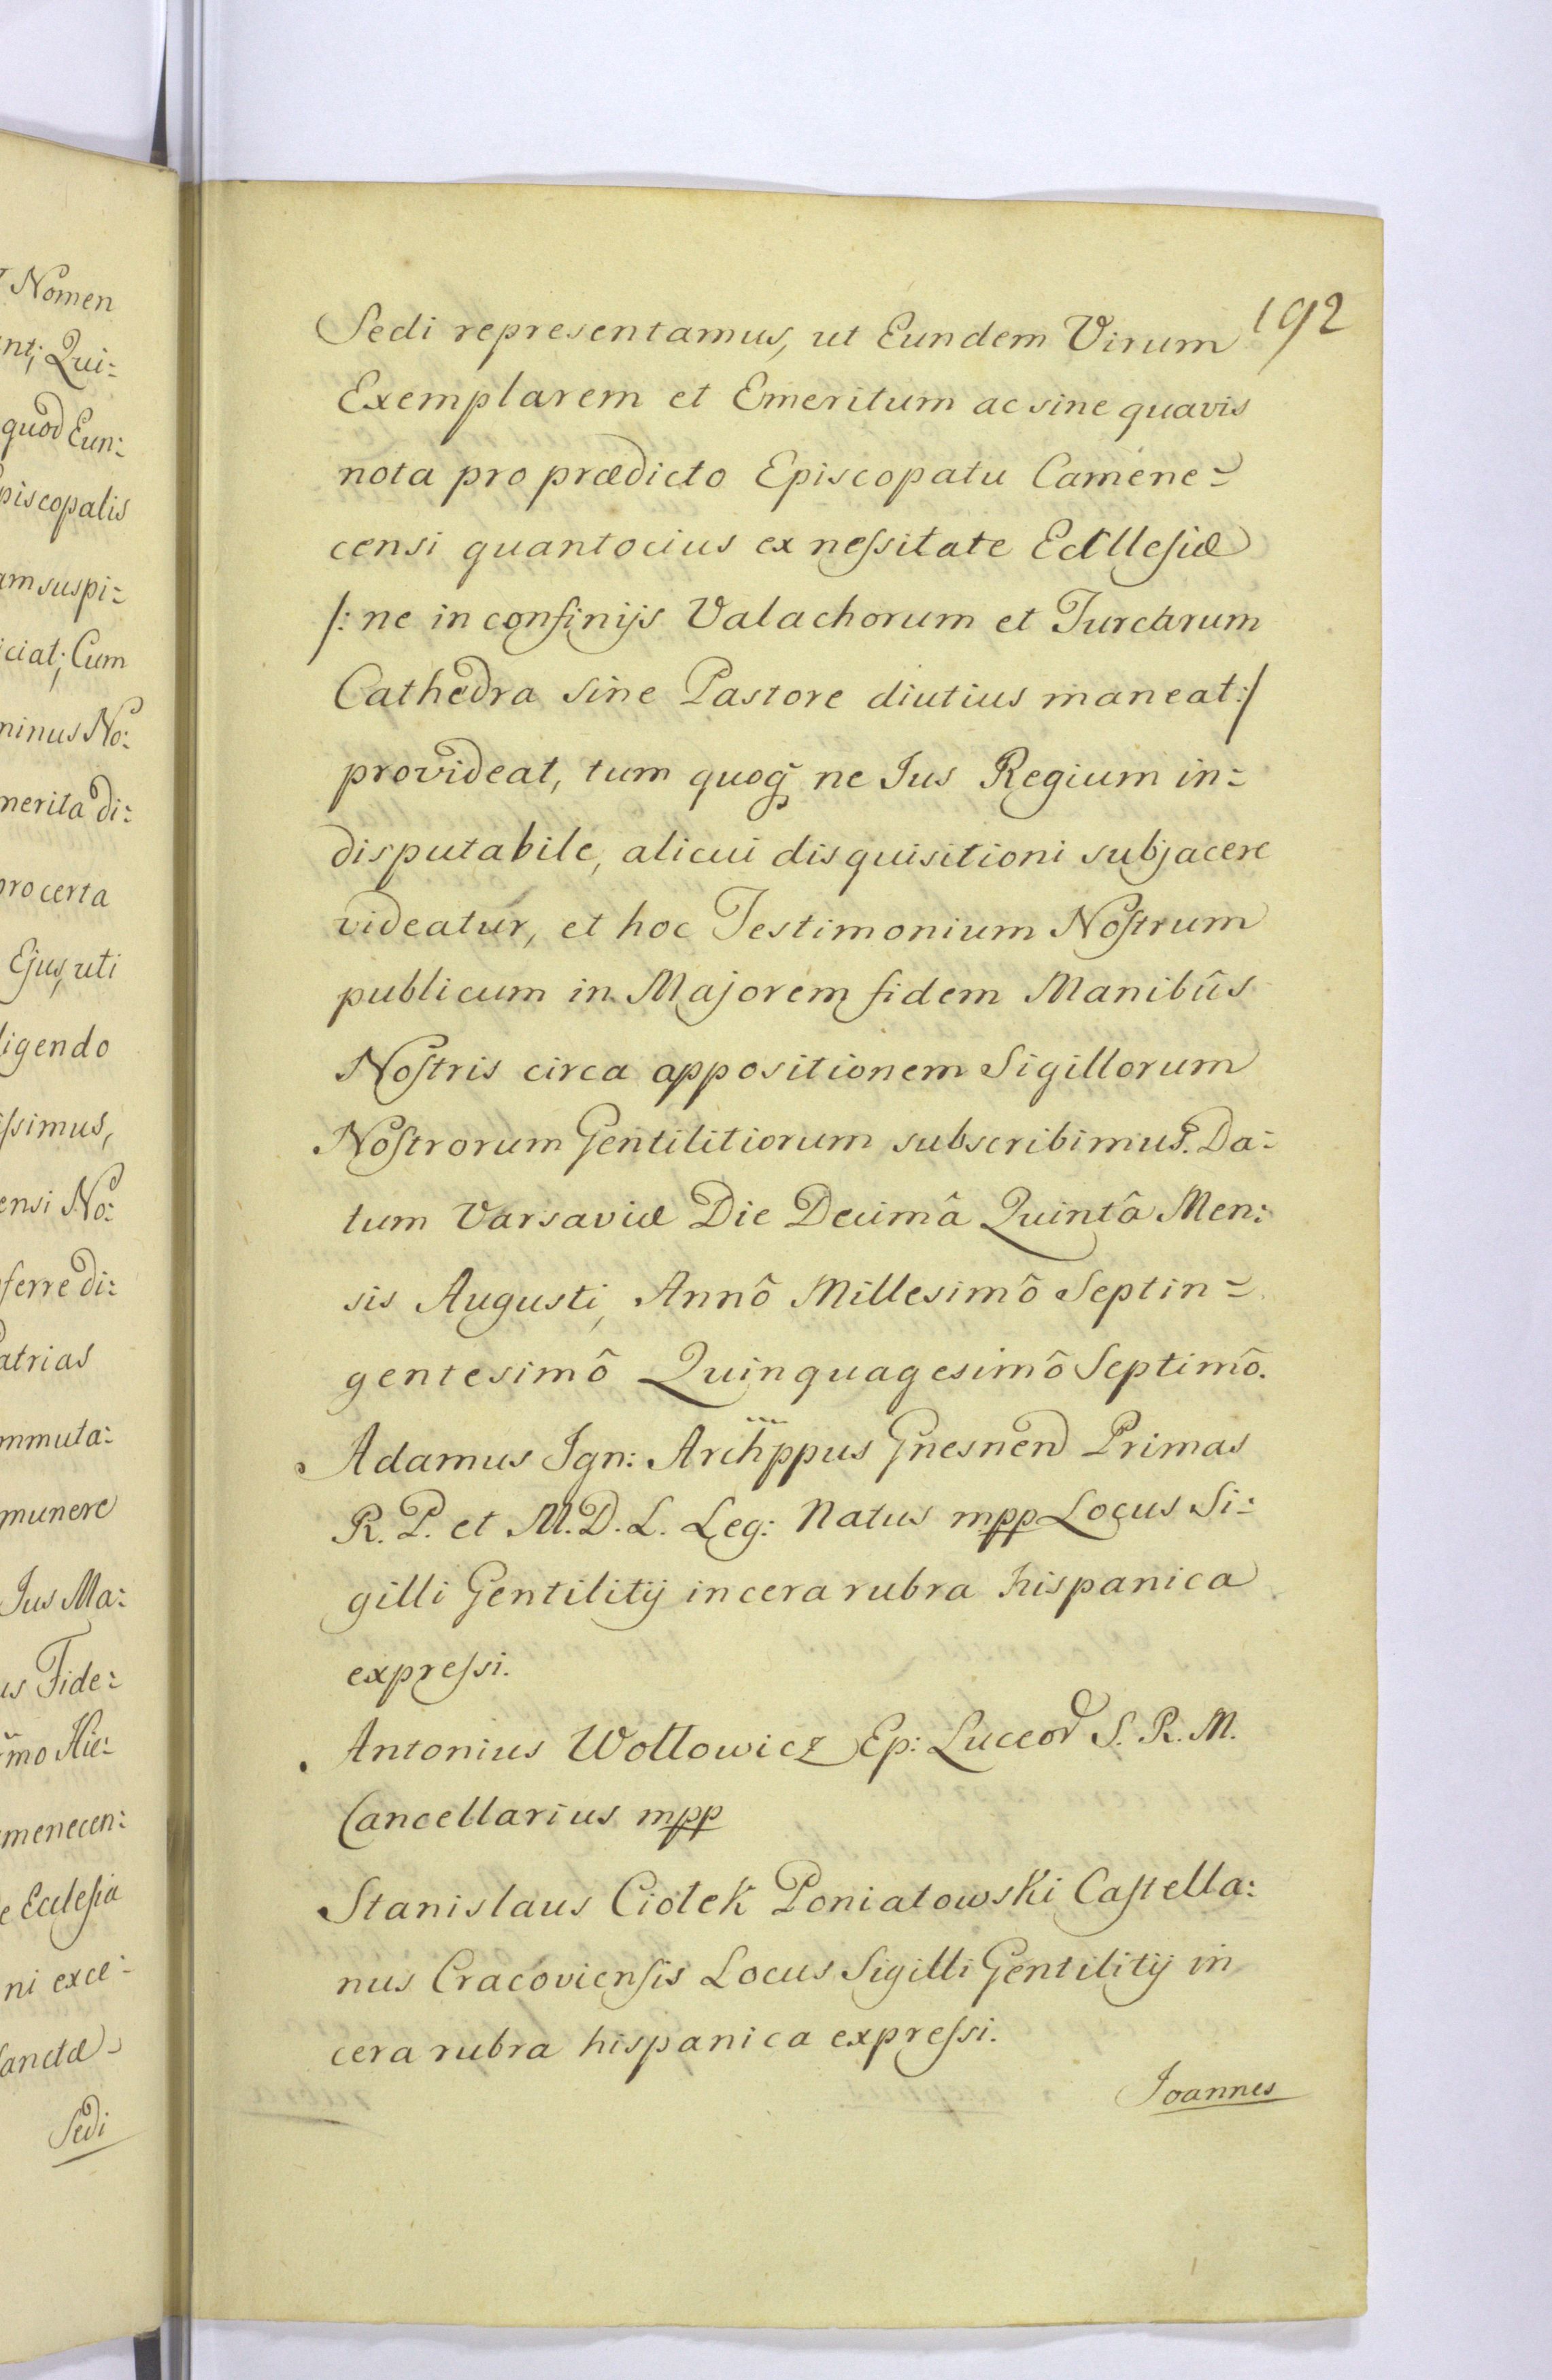 Nomen
nt; Qui:
quod Eun:
piscopalis
am suspi:
iciat; Cum
minus No:
merita di:
pro certa
Ejus, uti
ligendo
issimus,
ensi No:
ferre di:
Patrias
mmuta:
munere
Jus Ma:
us Fide:
mo Hie:
menecen:
e Ecclesia
ni exce:
Sanctæ
Sedi
192
Sedi representamus, ut Eundem Virum
Exemplarem et Emeritum ac sine quavis
nota pro prædicto Episcopatu Camene=
censi quantocius ex neſsitate Ecclleſiæ
/: ne in confinijs Valachorum et Turcarum
Cathedra sine Pastore diutius maneat :/
provideat, tum quoq̃ ne Jus Regium in=
disputabile, alicui disquisitioni subjacere
videatur, et hoc Testimonium Noſtrum
publicum in Majorem fidem Manibûs
Noſtris circa appositionem Sigillorum
Noſtrorum Gentilitiorum subscribimus. Da:
tum Varsaviæ Die Decimâ Quintâ Men:
sis Augusti, Annô Millesimô Septin=
gentesimô Quinquagesimô Septimô.
Adamus Ign: Archppus Gnesnen Primas
R. P. et M. D. L. Leg: Natus mpp Locus Si:
gilli Gentilitij in cera rubra hispanica
expreſsi.
Antonius Wołłowicz Ep: Luceor S. R. M.
Cancellarius mpp
Stanislaus Ciołek Poniatowski Caſtella:
nus Cracovienſis Locus Sigilli Gentilitij in
cera rubra hispanica expreſsi.
Joannes